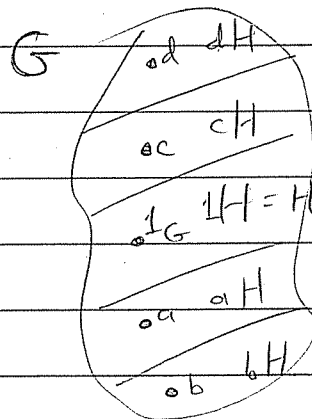 G
d dH
c cH
1_G 1H = H
a aH
b bH